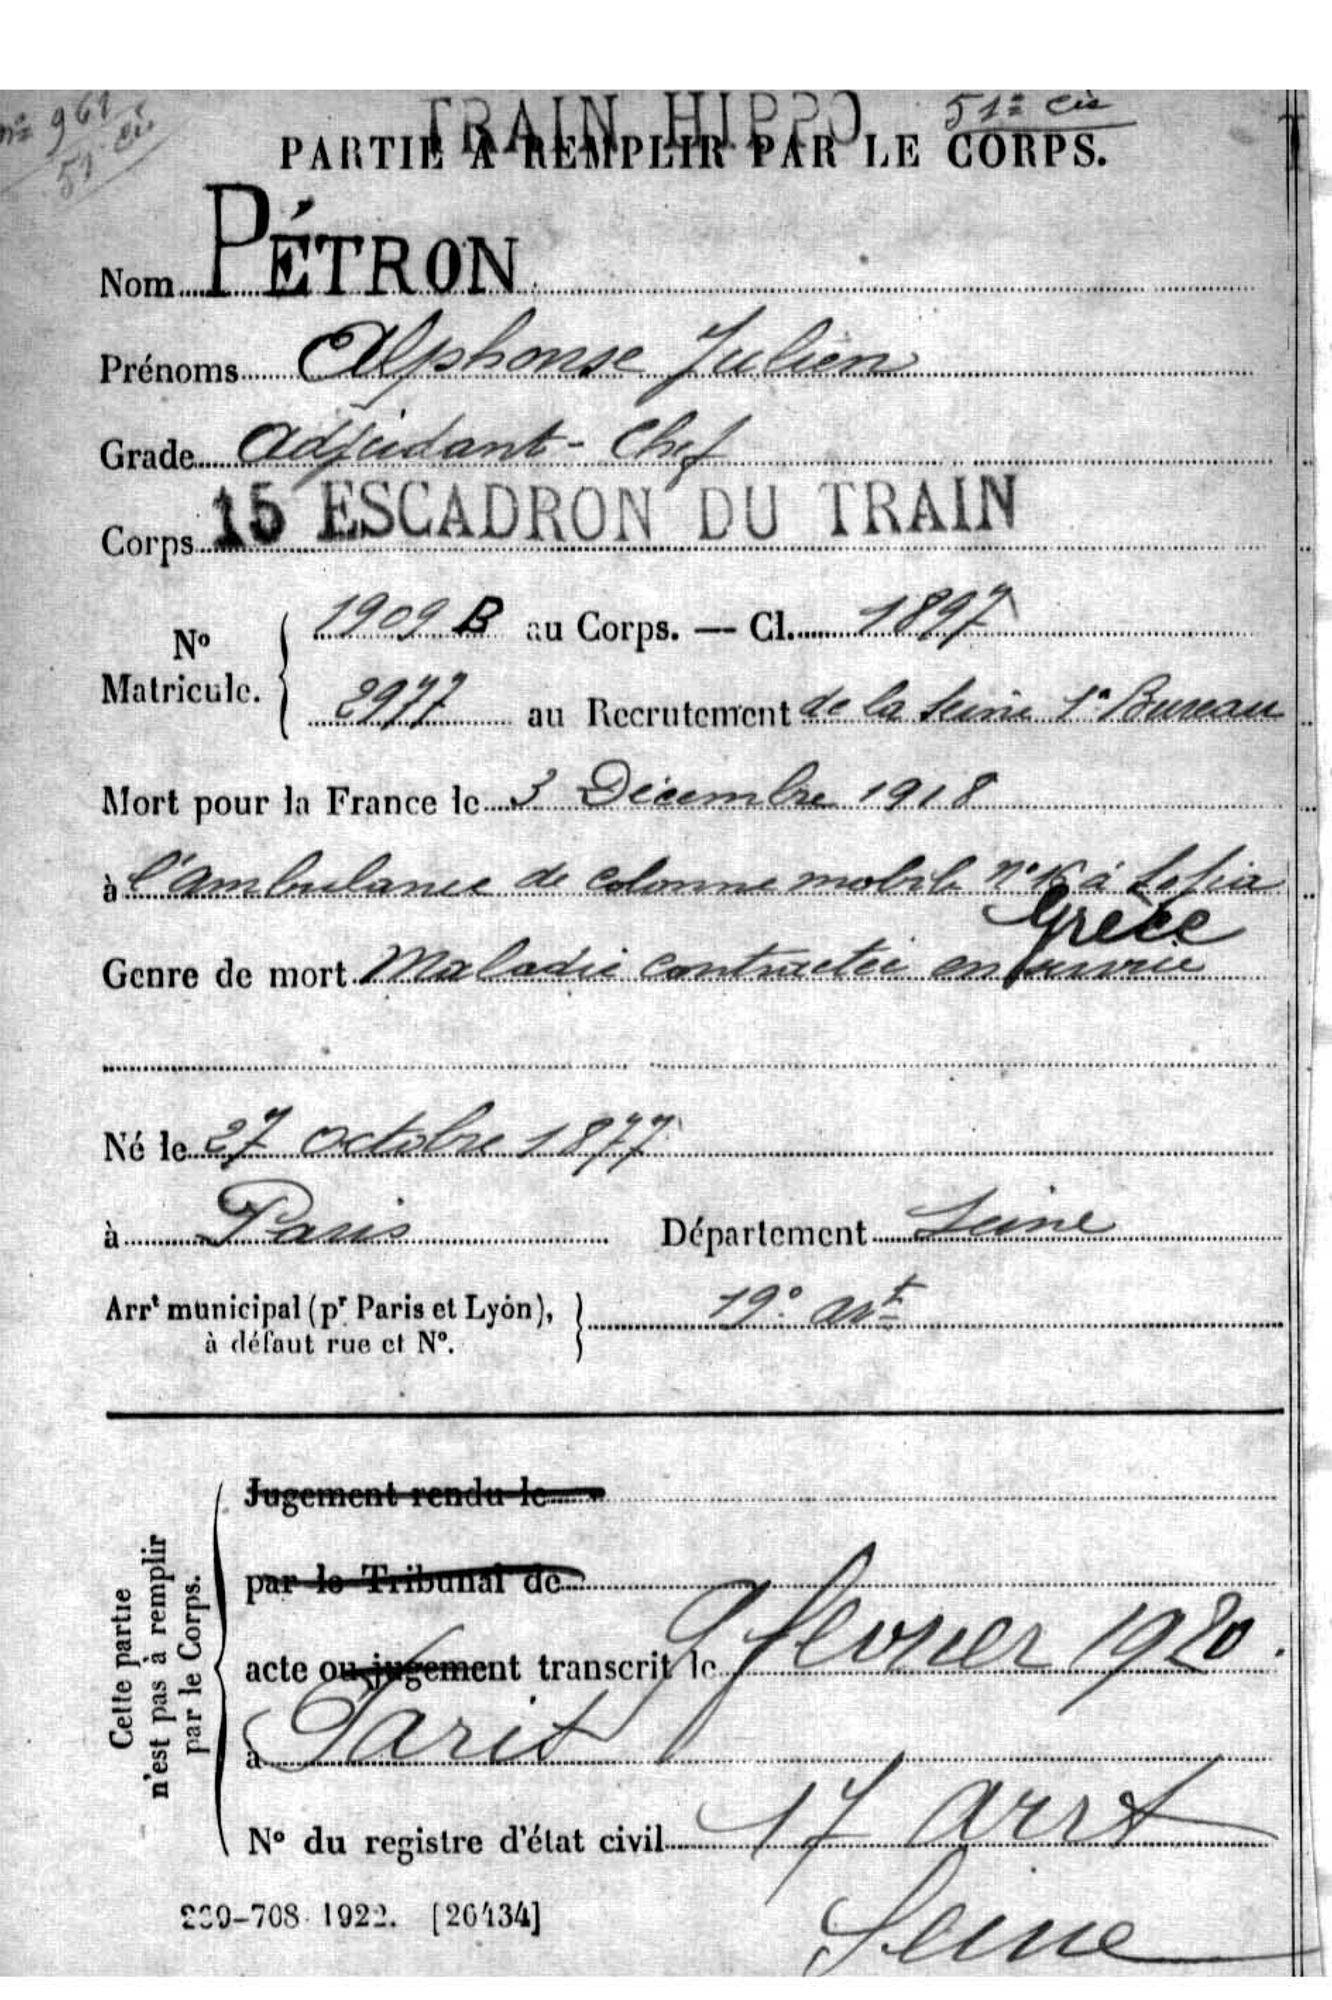 TRAIN HIPPO 51e Cie
nº 961
51 Cie
PARTIE À REMPLIR PAR LE CORPS.
Nom PÉTRON
Prénoms Alphonse Julien
Grade Adjudant-Chef
Corps 15 ESCADRON DU TRAIN
Nº Matricule. 1909 B au Corps. — Cl. 1897
2977 au Recrutement de la Seine 1er Bureau
Mort pour la France le 3 Décembre 1918
à l'ambulance de colonne mobile nº à Sofia
Grèce
Genre de mort Maladie contractée en service
Né le 27 octobre 1877
à Paris Département Seine
Arrt municipal (pr Paris et Lyon), 19º arrt
à défaut rue et Nº.
Cette partie n'est pas à remplir par le Corps.
Jugement rendu le
par le Tribunal de
acte ou jugement transcrit le 9 février 1920.
à Paris
Nº du registre d'état civil 17 arrt
Seine
239-708 1922. [26434]